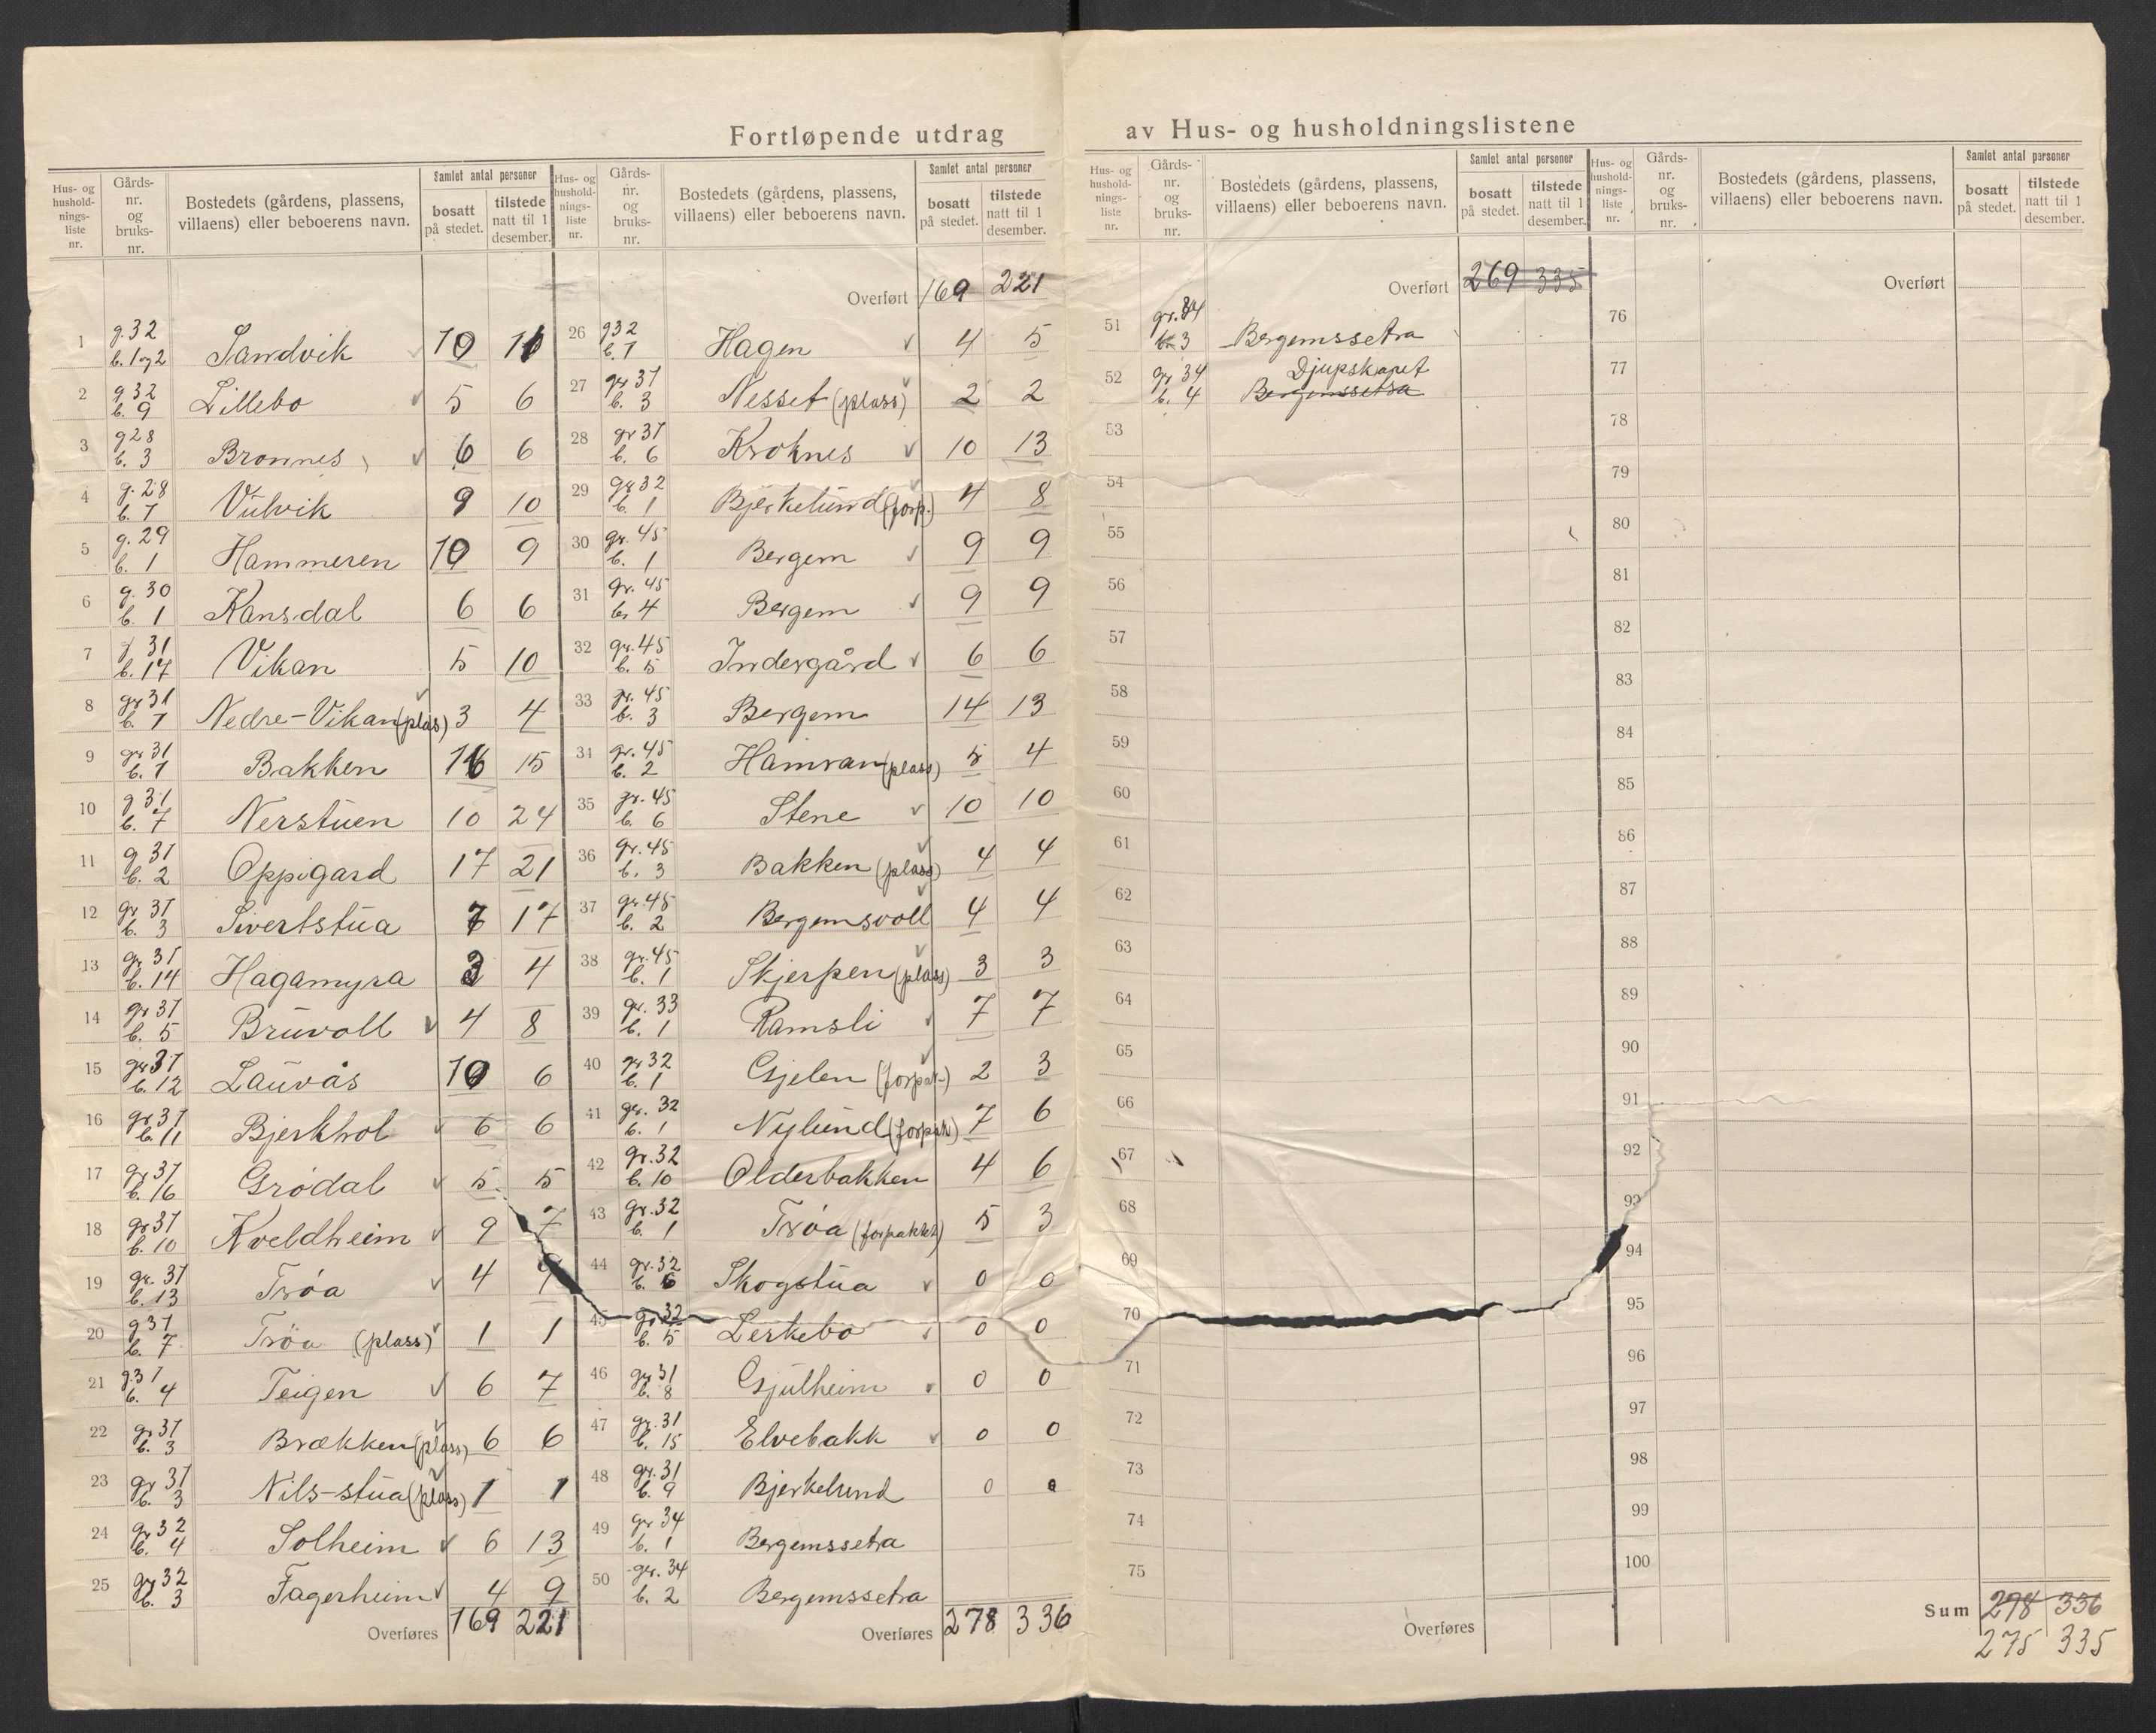 Fortløpende utdrag av Hus- og husholdningslistene
Hus- og husholdningsliste nr. Gårds- nr. og bruks- nr. Bostedets (gårdens, plassens, villaens) eller beboerens navn. Samlet antal personer bosatt på stedet. tilstede natt til 1 desember.
1 g. 32 b. 1 og 2 Sandvik 10
2 g 32 b. 9 Lillebo 5 6
3 g 28 b. 3 Bronnes 6 6
4 g. 28 b. 1 Vulvik 9 10
5 g. 29 b. 1 Hammeren 10 9
6 g. 30 b. 1 Kansdal 6 6
7 g 31 b. 17 Vikan 5 10
8 gr 31 b. 1 Nedre-Vikan (plas) 3 4
9 gr 31 b. 1 Bakken 16 15
10 g 31 b. 7 Nerstuen 10 24
11 g 31 b. 2 Oppigard 17 21
12 gr 31 b. 3 Sivertstua 7 17
13 gr 31 b. 14 Hagamyra 3 4
14 gr 31 b. 5 Bruvoll 4 8
15 gr 31 b. 12 Lauvås 10 6
16 gr 31 b. 11 Bjerkhol 6 6
17 gr 31 b. 16 Grødal 5 5
18 gr 31 b. 10 Kveldheim 9 7
19 gr. 31 b. 13 Trøa 4 9
20 g 31 b. 7 Trøa (plass) 1 1
21 g. 31 b. 4 Teigen 6 7
22 gr 31 b. 3 Brækken (plass) 6 6
23 gr 31 b. 3 Nils-stua (plass) 1 1
24 gr 32 b. 4 Solheim 6 13
25 gr 32 b. 3 Fagerheim 4 9
Overføres 169 221
Hus- og husholdningsliste nr. Gårds- nr. og bruks- nr. Bostedets (gårdens, plassens, villaens) eller beboerens navn. Samlet antal personer bosatt på stedet. tilstede natt til 1 desember.
Overført 169 221
26 g 32 b. 7 Hagen 4 5
27 gr 31 b. 3 Nesset (plass) 2 2
28 gr 31 b. 6 Kroknes 10 13
29 gr 32 b. 1 Bjerkelund (forp.) 4 8
30 gr. 45 b. 1 Bergem 9 9
31 gr. 45 b. 4 Bergem 9 9
32 gr. 45 b. 5 Indergård 6 6
33 gr. 45 b. 3 Bergem 14 13
34 gr. 45 b. 2 Hamran (plass) 5 4
35 gr. 45 b. 6 Stene 10 10
36 gr. 45 b. 3 Bakken (plass) 4 4
37 gr. 45 b. 2 Bergemsvoll 4 4
38 gr. 45 b. 1 Skjerpen (plass) 3 3
39 gr. 33 b. 1 Ramsli 7 7
40 gr 32 b. 1 Gjelen (forpak.) 2 3
41 gr. 32 b. 1 Nylund (forpak) 7 6
42 gr. 32 b. 10 Olderbakken 4 6
43 gr. 32 b. 1 Trøa 5 3
44 gr. 32 b. 6 Skogstua 0 0
45 gr 32 b. 5 Lerkebo 0 0
46 gr 31 b. 8 Gjulheim 0 0
47 gr. 31 b. 15 Elvebakk 0 0
48 gr. 31 b. 9 Bjerkelund 0 0
49 gr 34 b. 1 Bergemssetra
50 gr. 34 b. 2 Bergemssetra
Overføres 278 336
Hus- og husholdningsliste nr. Gårds- nr. og bruks- nr. Bostedets (gårdens, plassens, villaens) eller beboerens navn. Samlet antal personer bosatt på stedet. tilstede natt til 1 desember.
Overført 269 335
51 gr. 34 b. 3 Bergemssetra
52 gr 34 b. 4 Djupskaret
Bergemssetra
53
54
55
56
57
58
59
60
61
62
63
64
65
66
67
68
69
70
71
72
73
74
75
Overføres
Hus- og husholdningsliste nr. Gårds- nr. og bruks- nr. Bostedets (gårdens, plassens, villaens) eller beboerens navn. Samlet antal personer bosatt på stedet. tilstede natt til 1 desember.
Overført
76
77
78
79
80
81
82
83
84
85
86
87
88
89
90
91
92
93
94
95
96
97
98
99
100
Sum 278 336
275 335